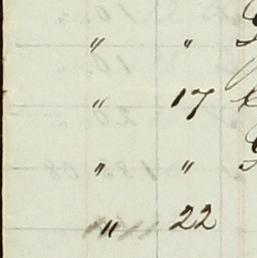 " "
" 17
" "
" 22